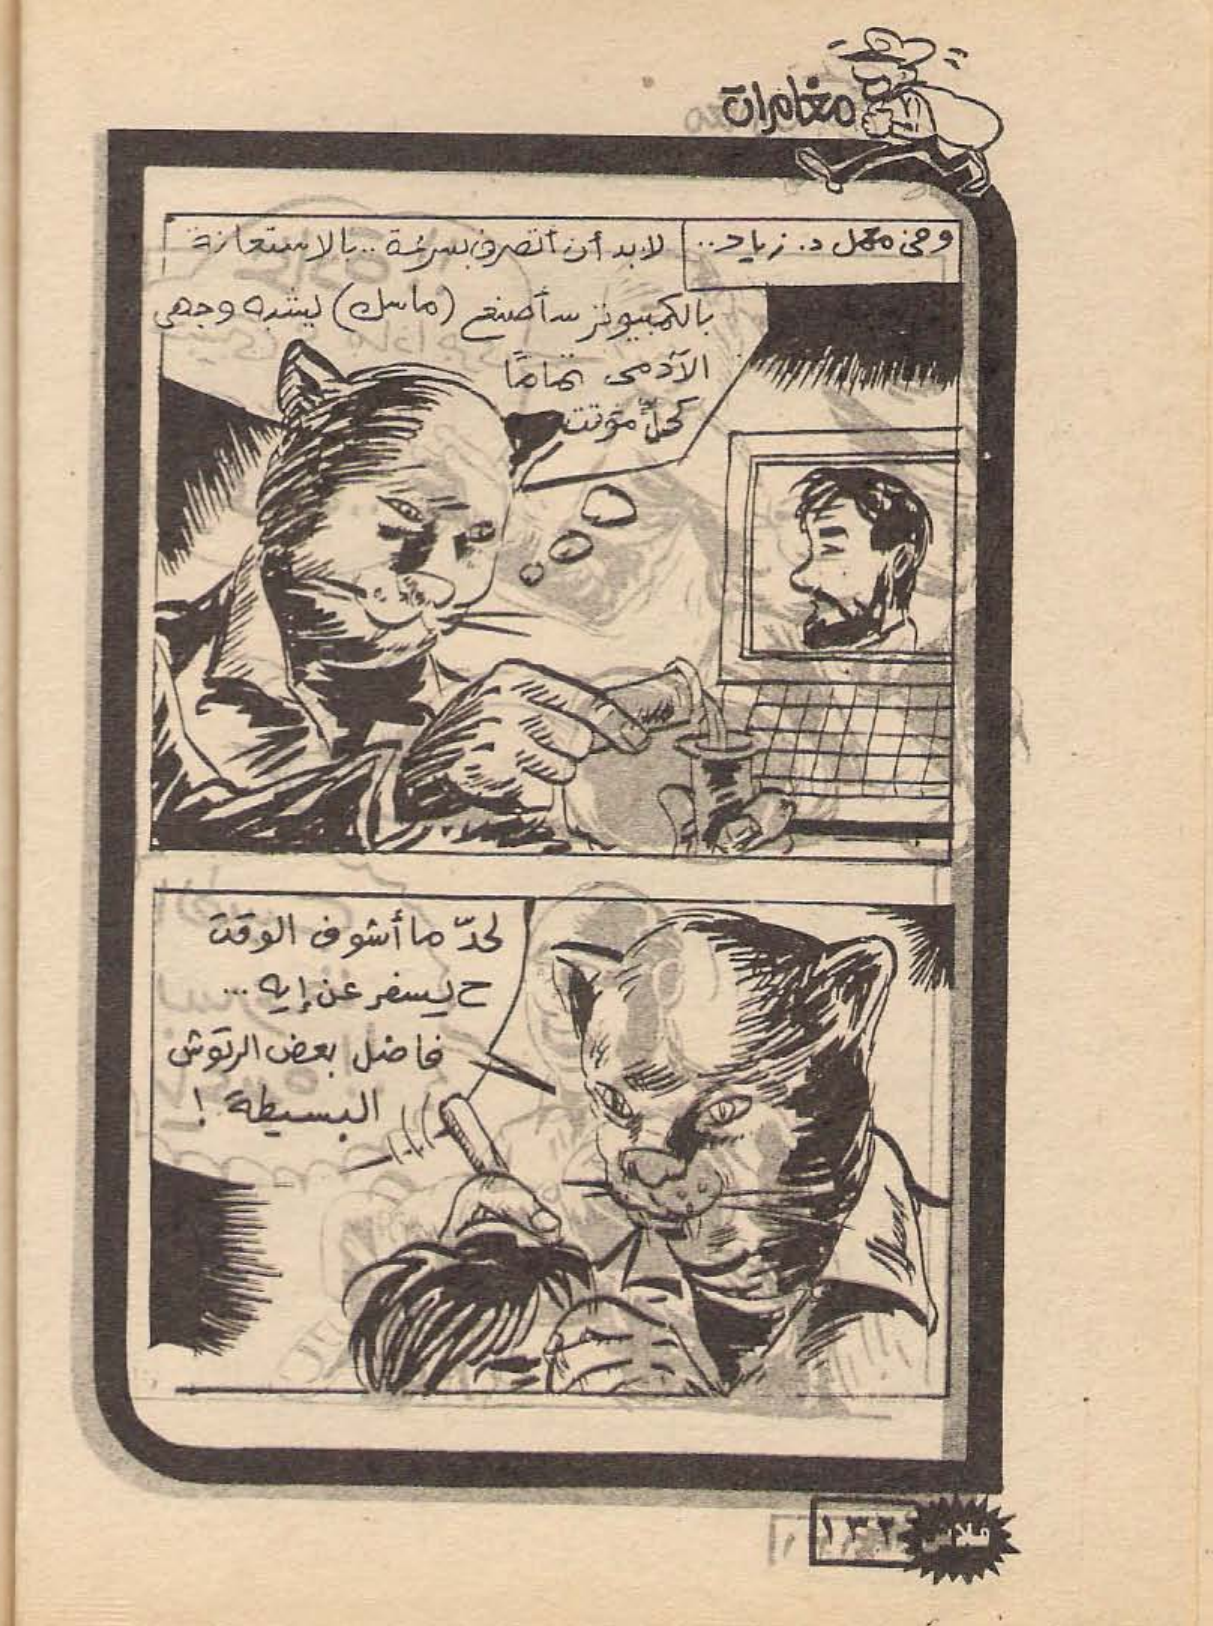 مغامرات
وفى معمل د. زياد..
لابد أن أتصرف بسرعة .. بالاستعانة
بالكمبيوتر سأصنع (ماسك) يشبه وجهى
الآدمى تمامًا
كحلٍّ مؤقت
لحدّ ما أشوف الوقت
ح يسفر عن إيه ...
فاضل بعض الرتوش
البسيطة !
فلاش ١٣٢